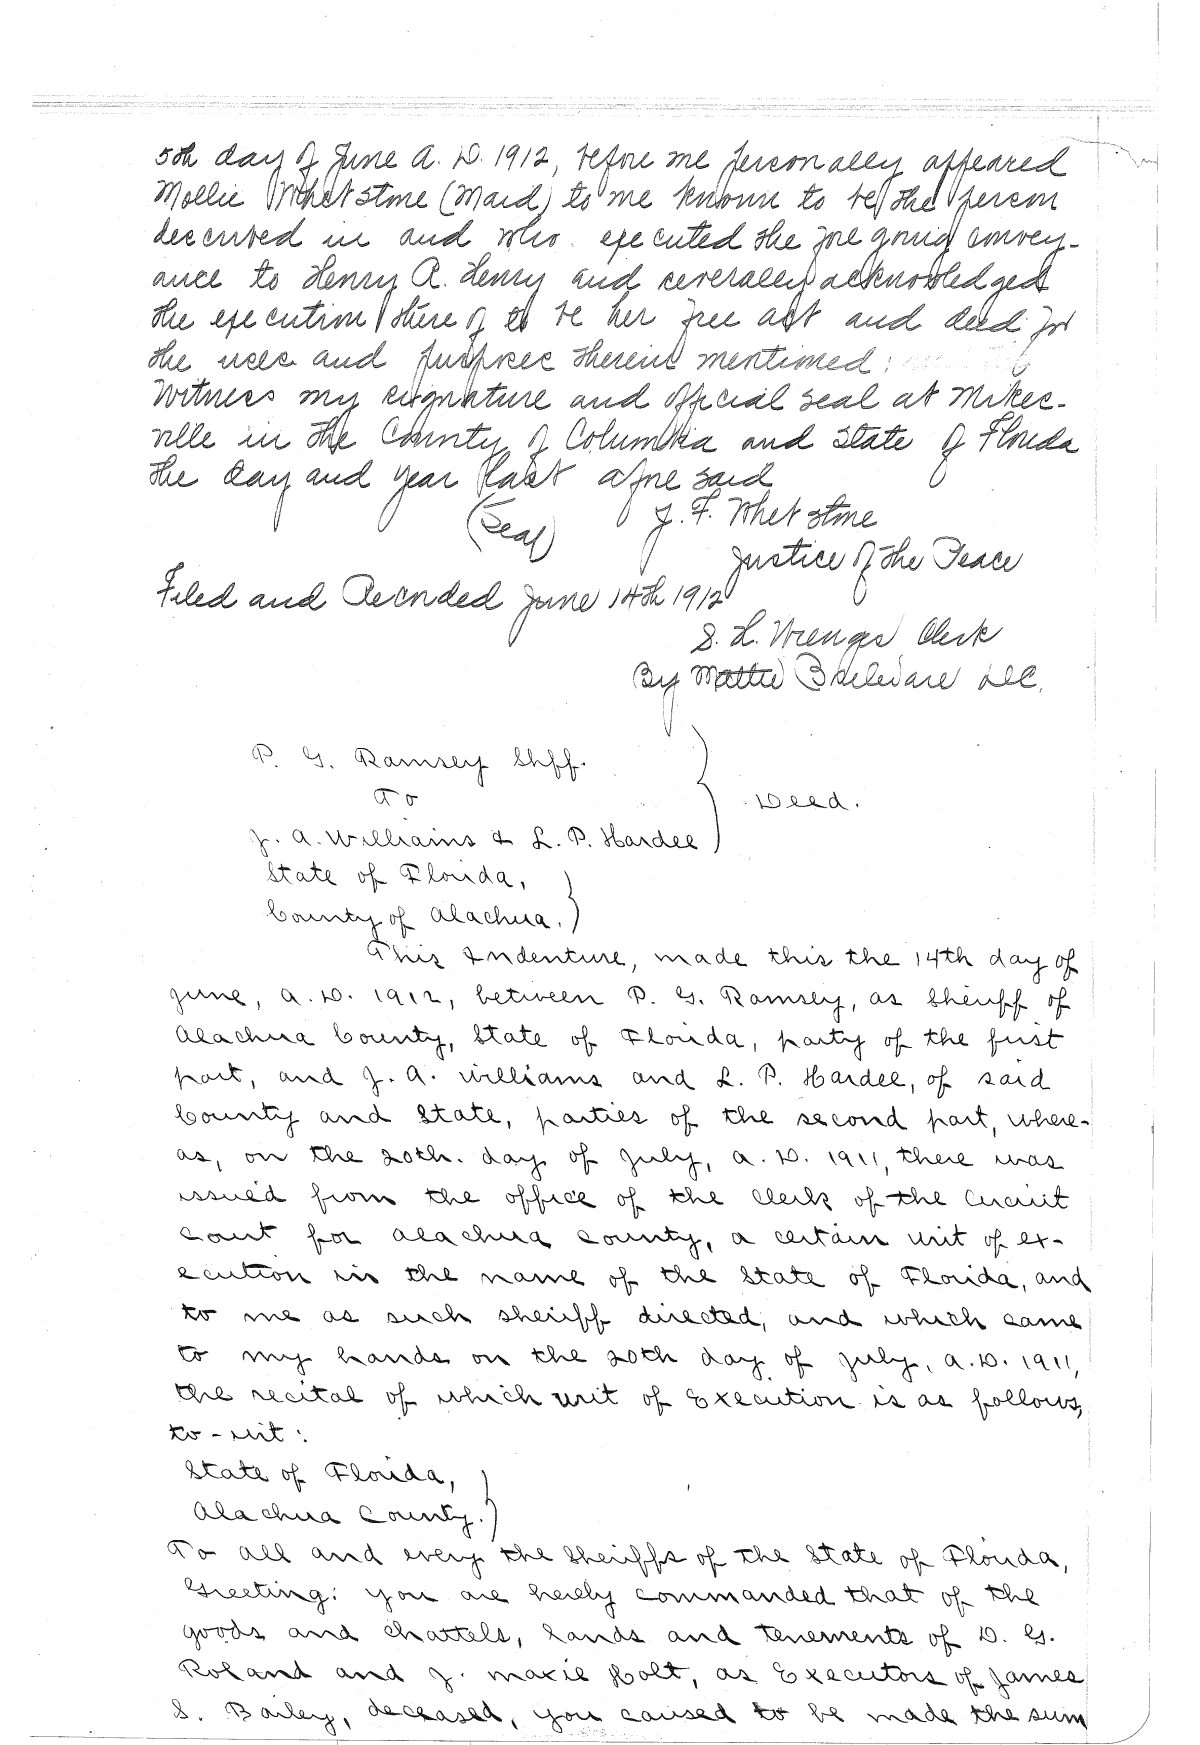 5th day of June A. D. 1912, before me personally appeared
Mollie Whetstone (Maid) to me known to be the person
described in and who executed the foregoing convey-
ance to Henry A. Henry and severally acknowledged
the execution thereof to be her free act and deed for
the uses and purposes therein mentioned;
Witness my signature and official seal at Mikes-
ville in the County of Columbia and State of Florida
the day and year last aforesaid
(Seal) J. F. Whetstone
Justice of the Peace
Filed and Recorded June 14th 1912
S. H. Wienges Clerk
By Mattie D.C.
P. G. Ramsey Shff.
To
Deed.
J. A. Williams & L. P. Hardee
State of Florida,
County of Alachua.
This Indenture, made this the 14th day of
June, A. D. 1912, between P. G. Ramsey, as Sheriff of
Alachua County, State of Florida, party of the first
part, and J. A. Williams and L. P. Hardee, of said
County and State, parties of the second part, where-
as, on the 20th. day of July, A. D. 1911, there was
issued from the office of the Clerk of the Circuit
Court for Alachua County, a certain writ of ex-
ecution in the name of the State of Florida, and
to me as such sheriff directed, and which came
to my hands on the 20th day of July, A. D. 1911,
the recital of which writ of Execution is as follows,
to-wit:
State of Florida,
Alachua County.
To all and every the Sheriffs of the State of Florida,
Greeting: you are hereby commanded that of the
goods and chattels, lands and tenements of D. G.
Roland and J. Maxie Colt, as Executors of James
S. Bailey, deceased, you caused to be made the sum